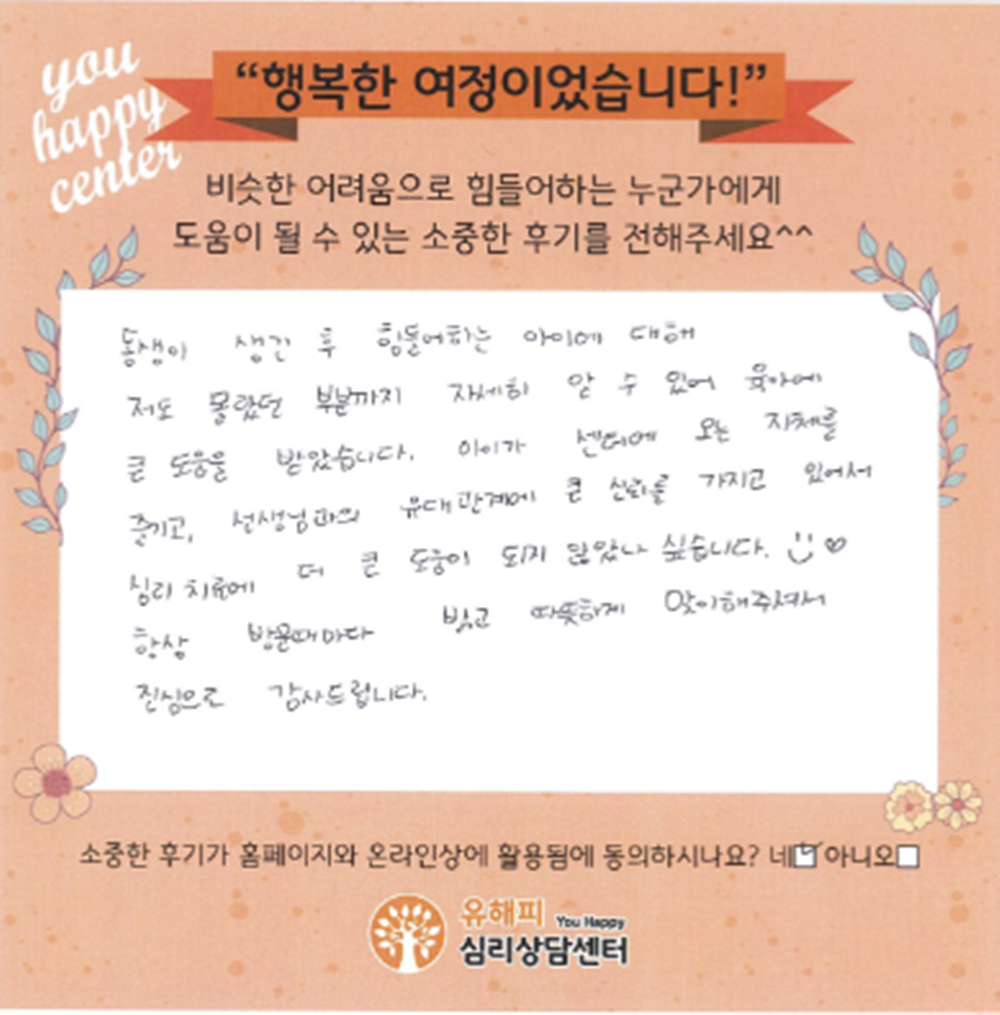 you
happy
center
“행복한 여정이었습니다!”
비슷한 어려움으로 힘들어하는 누군가에게
도움이 될 수 있는 소중한 후기를 전해주세요^^
동생이 생긴 후 힘들어하는 아이에 대해
저도 몰랐던 부분까지 자세히 알 수 있어 육아에
큰 도움을 받았습니다. 아이가 센터에 오는 자체를
즐기고, 선생님과의 유대관계에 큰 신뢰를 가지고 있어서
심리 치료에 더 큰 도움이 되지 않았나 싶습니다. :) ♡
항상 방문때마다 밝고 따뜻하게 맞이해주셔서
진심으로 감사드립니다.
소중한 후기가 홈페이지와 온라인상에 활용됨에 동의하시나요? 네☑ 아니오☐
유해피 You Happy
심리상담센터